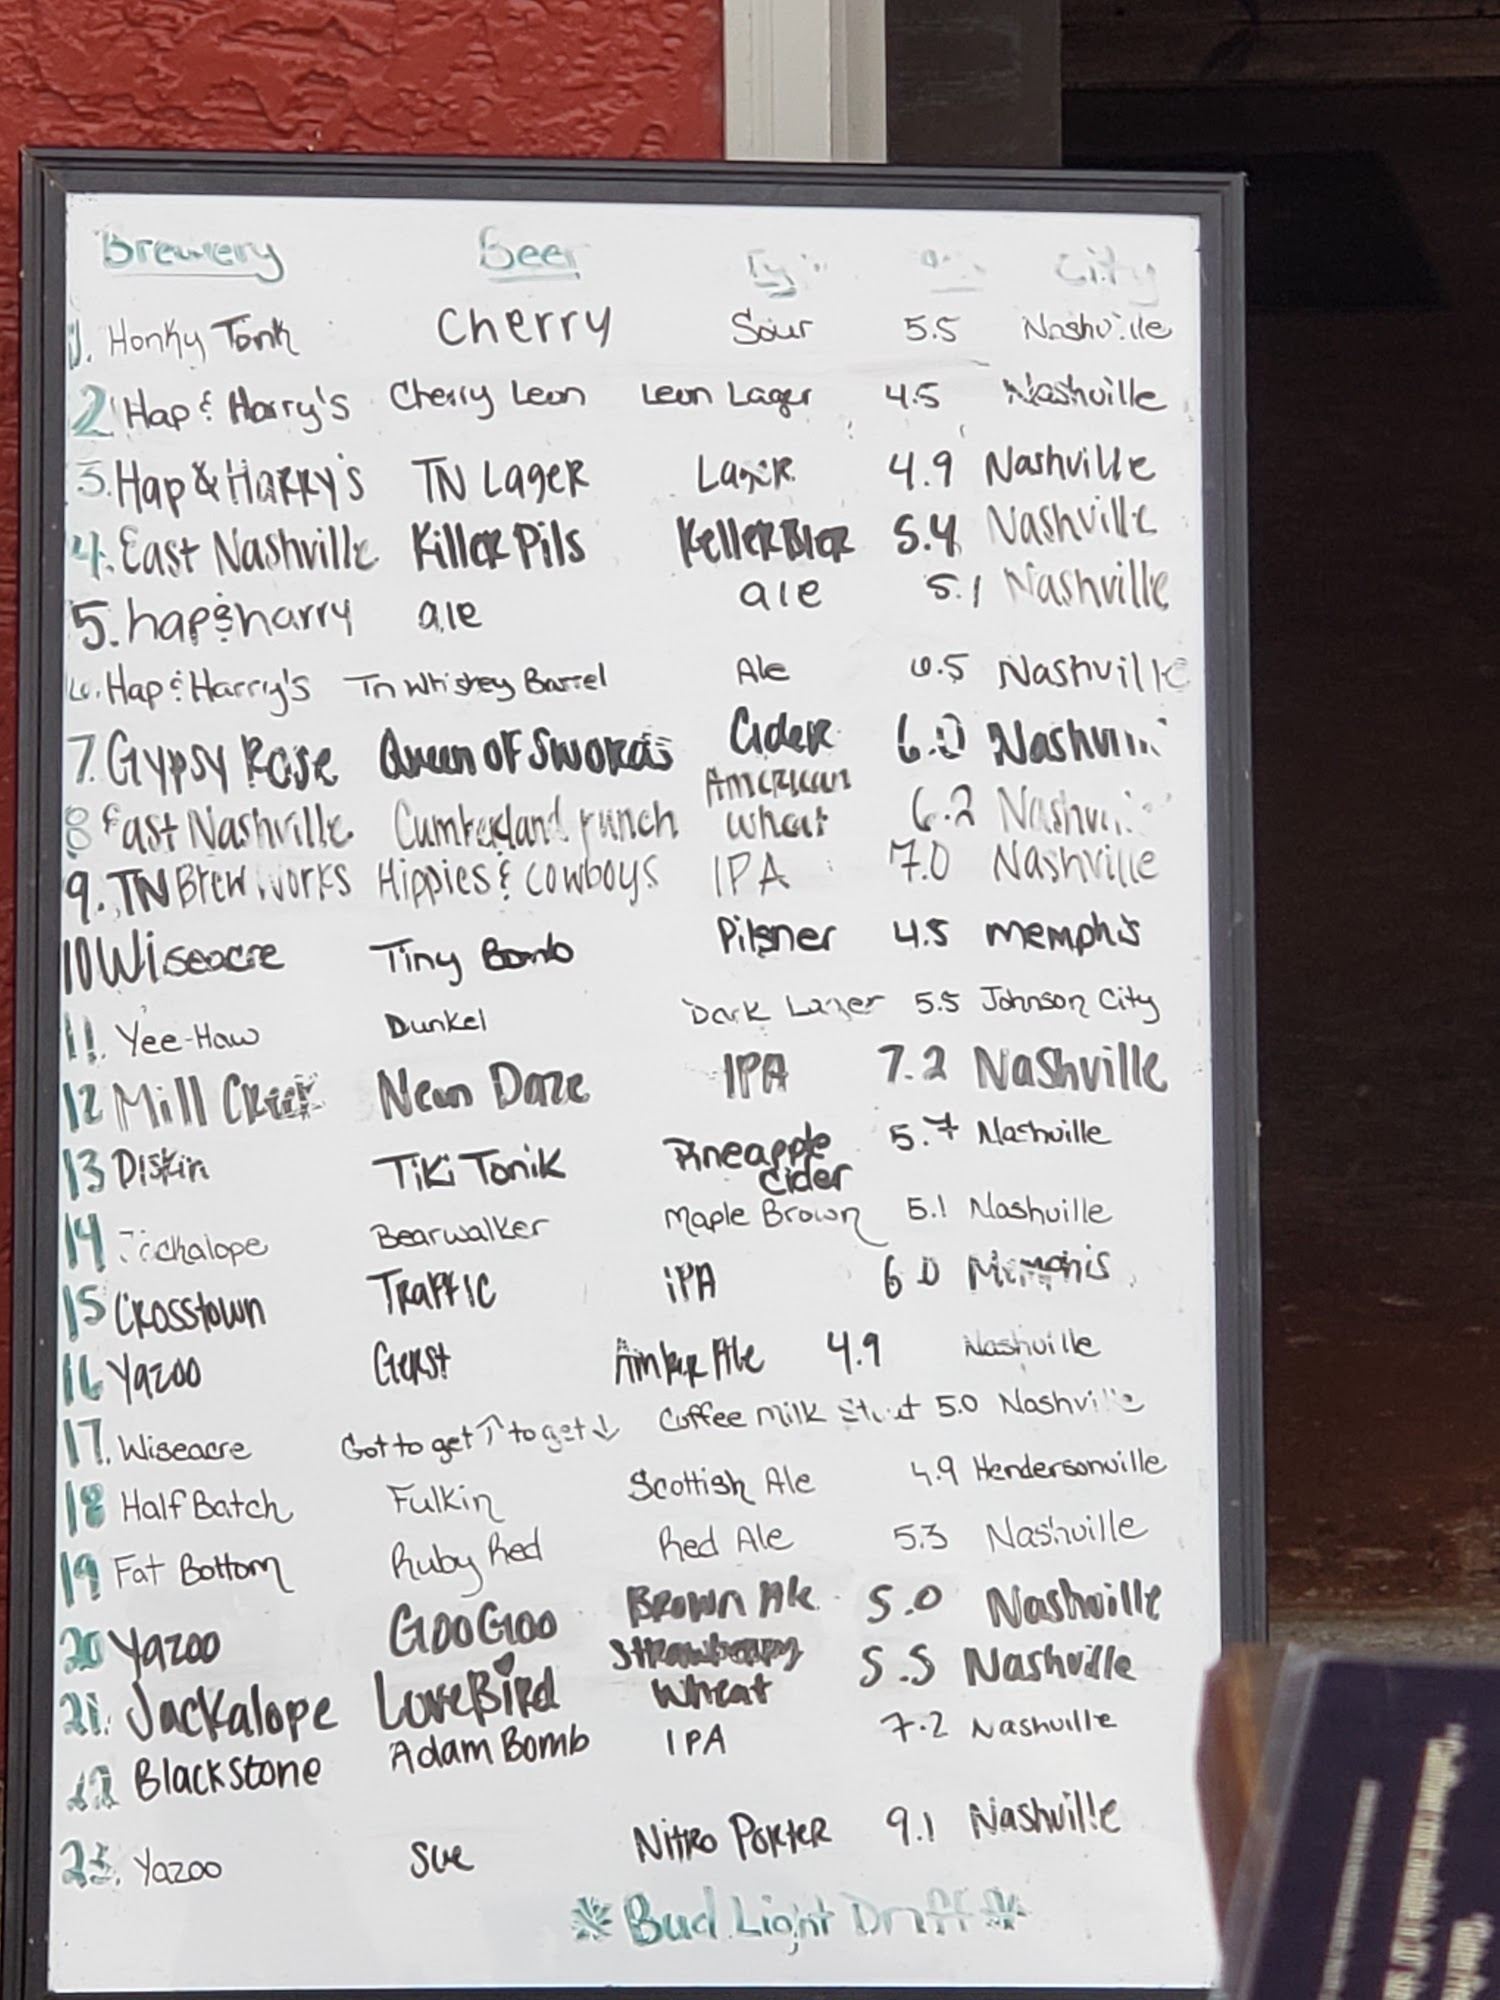 Brewery Beer City
1. Honky Tonk Cherry Sour 5.5 Nashville
2 Hap & Harry's Cherry Leon Leon Lager 4.5 Nashville
3. Hap & Harry's TN Lager Lager 4.9 Nashville
4. East Nashville Killer Pils Keller Bier 5.4 Nashville
5. hap & harry ale ale 5.1 Nashville
6. Hap & Harry's Tn Whiskey Barrel Ale 6.5 Nashville
7. Gypsy Rose Queen of Swords Cider 6.0 Nashville
8 East Nashville Cumberland Punch American Wheat 6.2 Nashville
9. TN Brew Works Hippies & Cowboys IPA 7.0 Nashville
10 Wiseacre Tiny Bomb Pilsner 4.5 Memphis
11. Yee-Haw Dunkel Dark Lager 5.5 Johnson City
12 Mill Creek Neon Daze IPA 7.2 Nashville
13 Diskin Tiki Tonik Pineapple Cider 5.7 Nashville
14 Jackalope Bearwalker Maple Brown 5.1 Nashville
15 Crosstown Traffic iPA 6.0 Memphis
16 Yazoo Gerst Amber Ale 4.9 Nashville
17. Wiseacre Got to get ↑ to get ↓ Coffee Milk Stout 5.0 Nashville
18 Half Batch Fulkin Scottish Ale 4.9 Hendersonville
19 Fat Bottom Ruby Red Red Ale 5.3 Nashville
20 Yazoo Goo Goo Brown Ale 5.0 Nashville
21. Jackalope LoveBird Strawberry Wheat 5.5 Nashville
22 Blackstone Adam Bomb IPA 7.2 Nashville
23. Yazoo Sue Nitro Porter 9.1 Nashville
* Bud Light Draft *